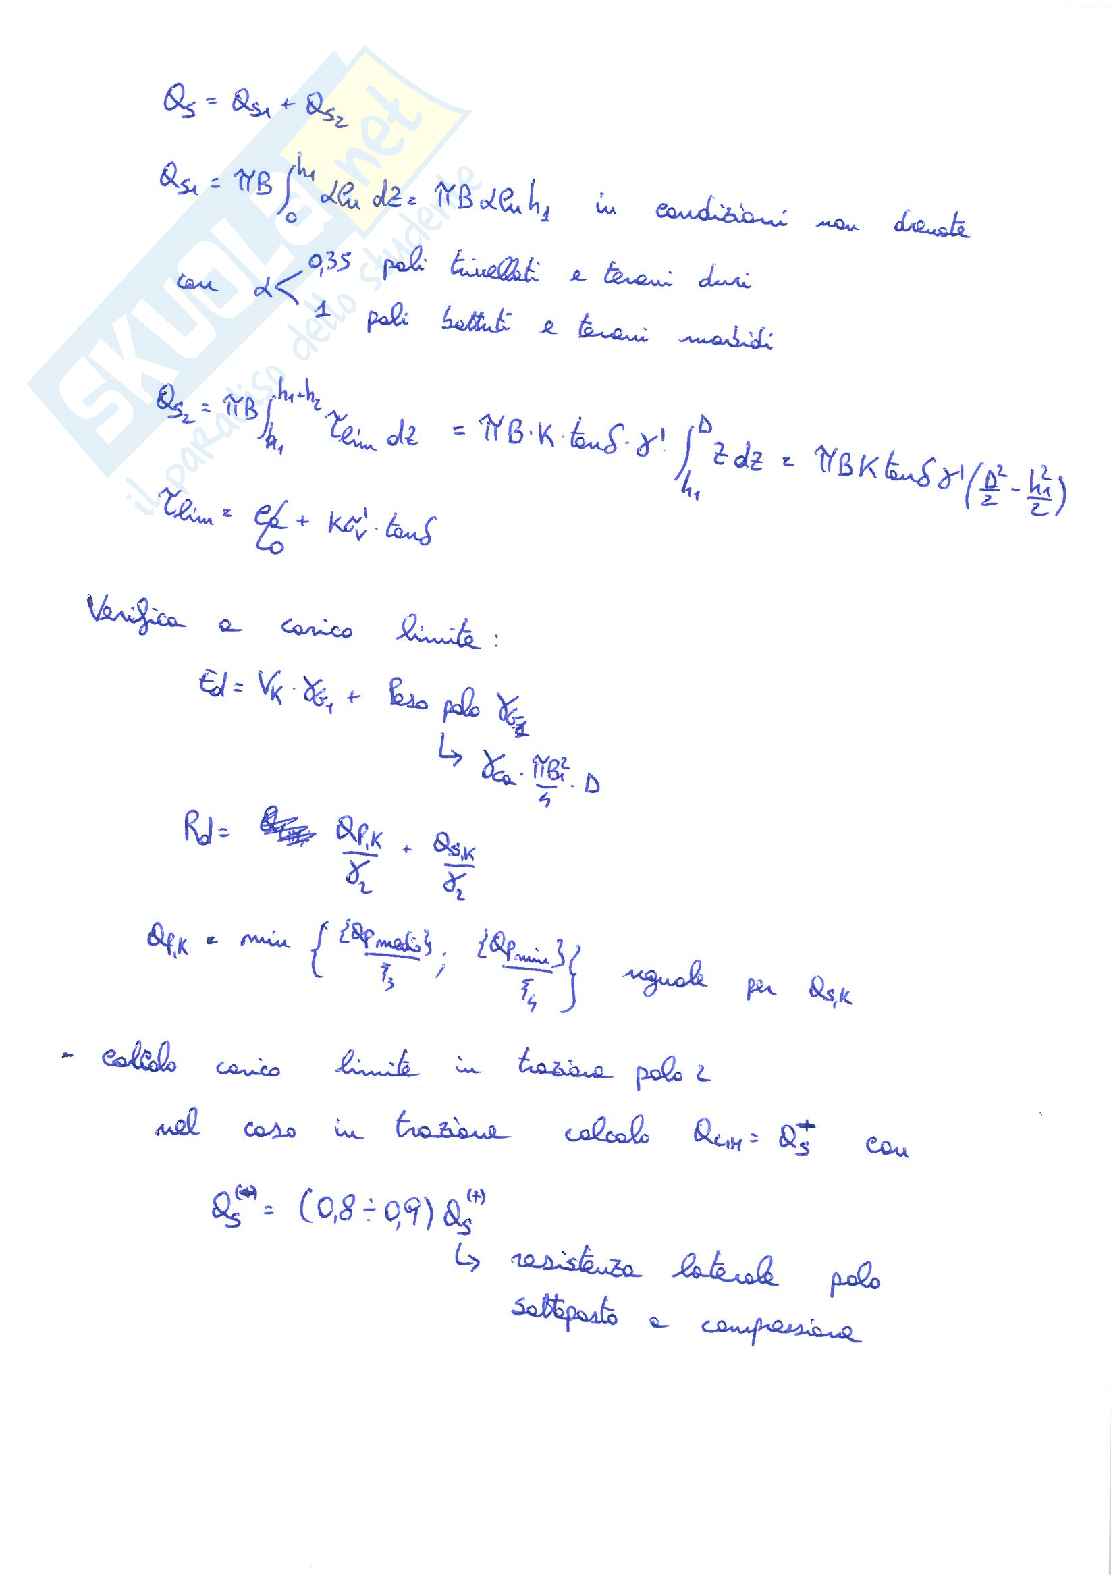 SKUOLA.net
il paradiso dello studente
Qs = Qs1 + Qs2
Qs1 = πB ∫₀^h1 αCu dz = πB αCu h1 in condizioni non drenate
con α < 0,35 pali trivellati e terreni duri
1 pali battuti e terreni morbidi
Qs2 = πB ∫_h1^(h1+h2) τlim dz = πB·K·tanδ·γ' ∫_h1^D z dz = πBK tanδ γ' (D²/2 - h1²/2)
τlim = + Kσ'v·tanδ
↳ 0
Verifica a carico limite:
Ed = VK·γG1 + Peso palo γG1
↳ γca·πB²/4·D
Rd = Qp,K/γ2 + Qs,K/γ2
Qp,K = min { {Qp medio}/ξ3 ; {Qp min}/ξ4 } uguale per Qs,K
- calcolo carico limite in trazione palo 2
nel caso in trazione calcolo QLIM = Qs con
Qs = (0,8 ÷ 0,9) Qs(+)
↳ resistenza laterale palo
sottoposto a compressione